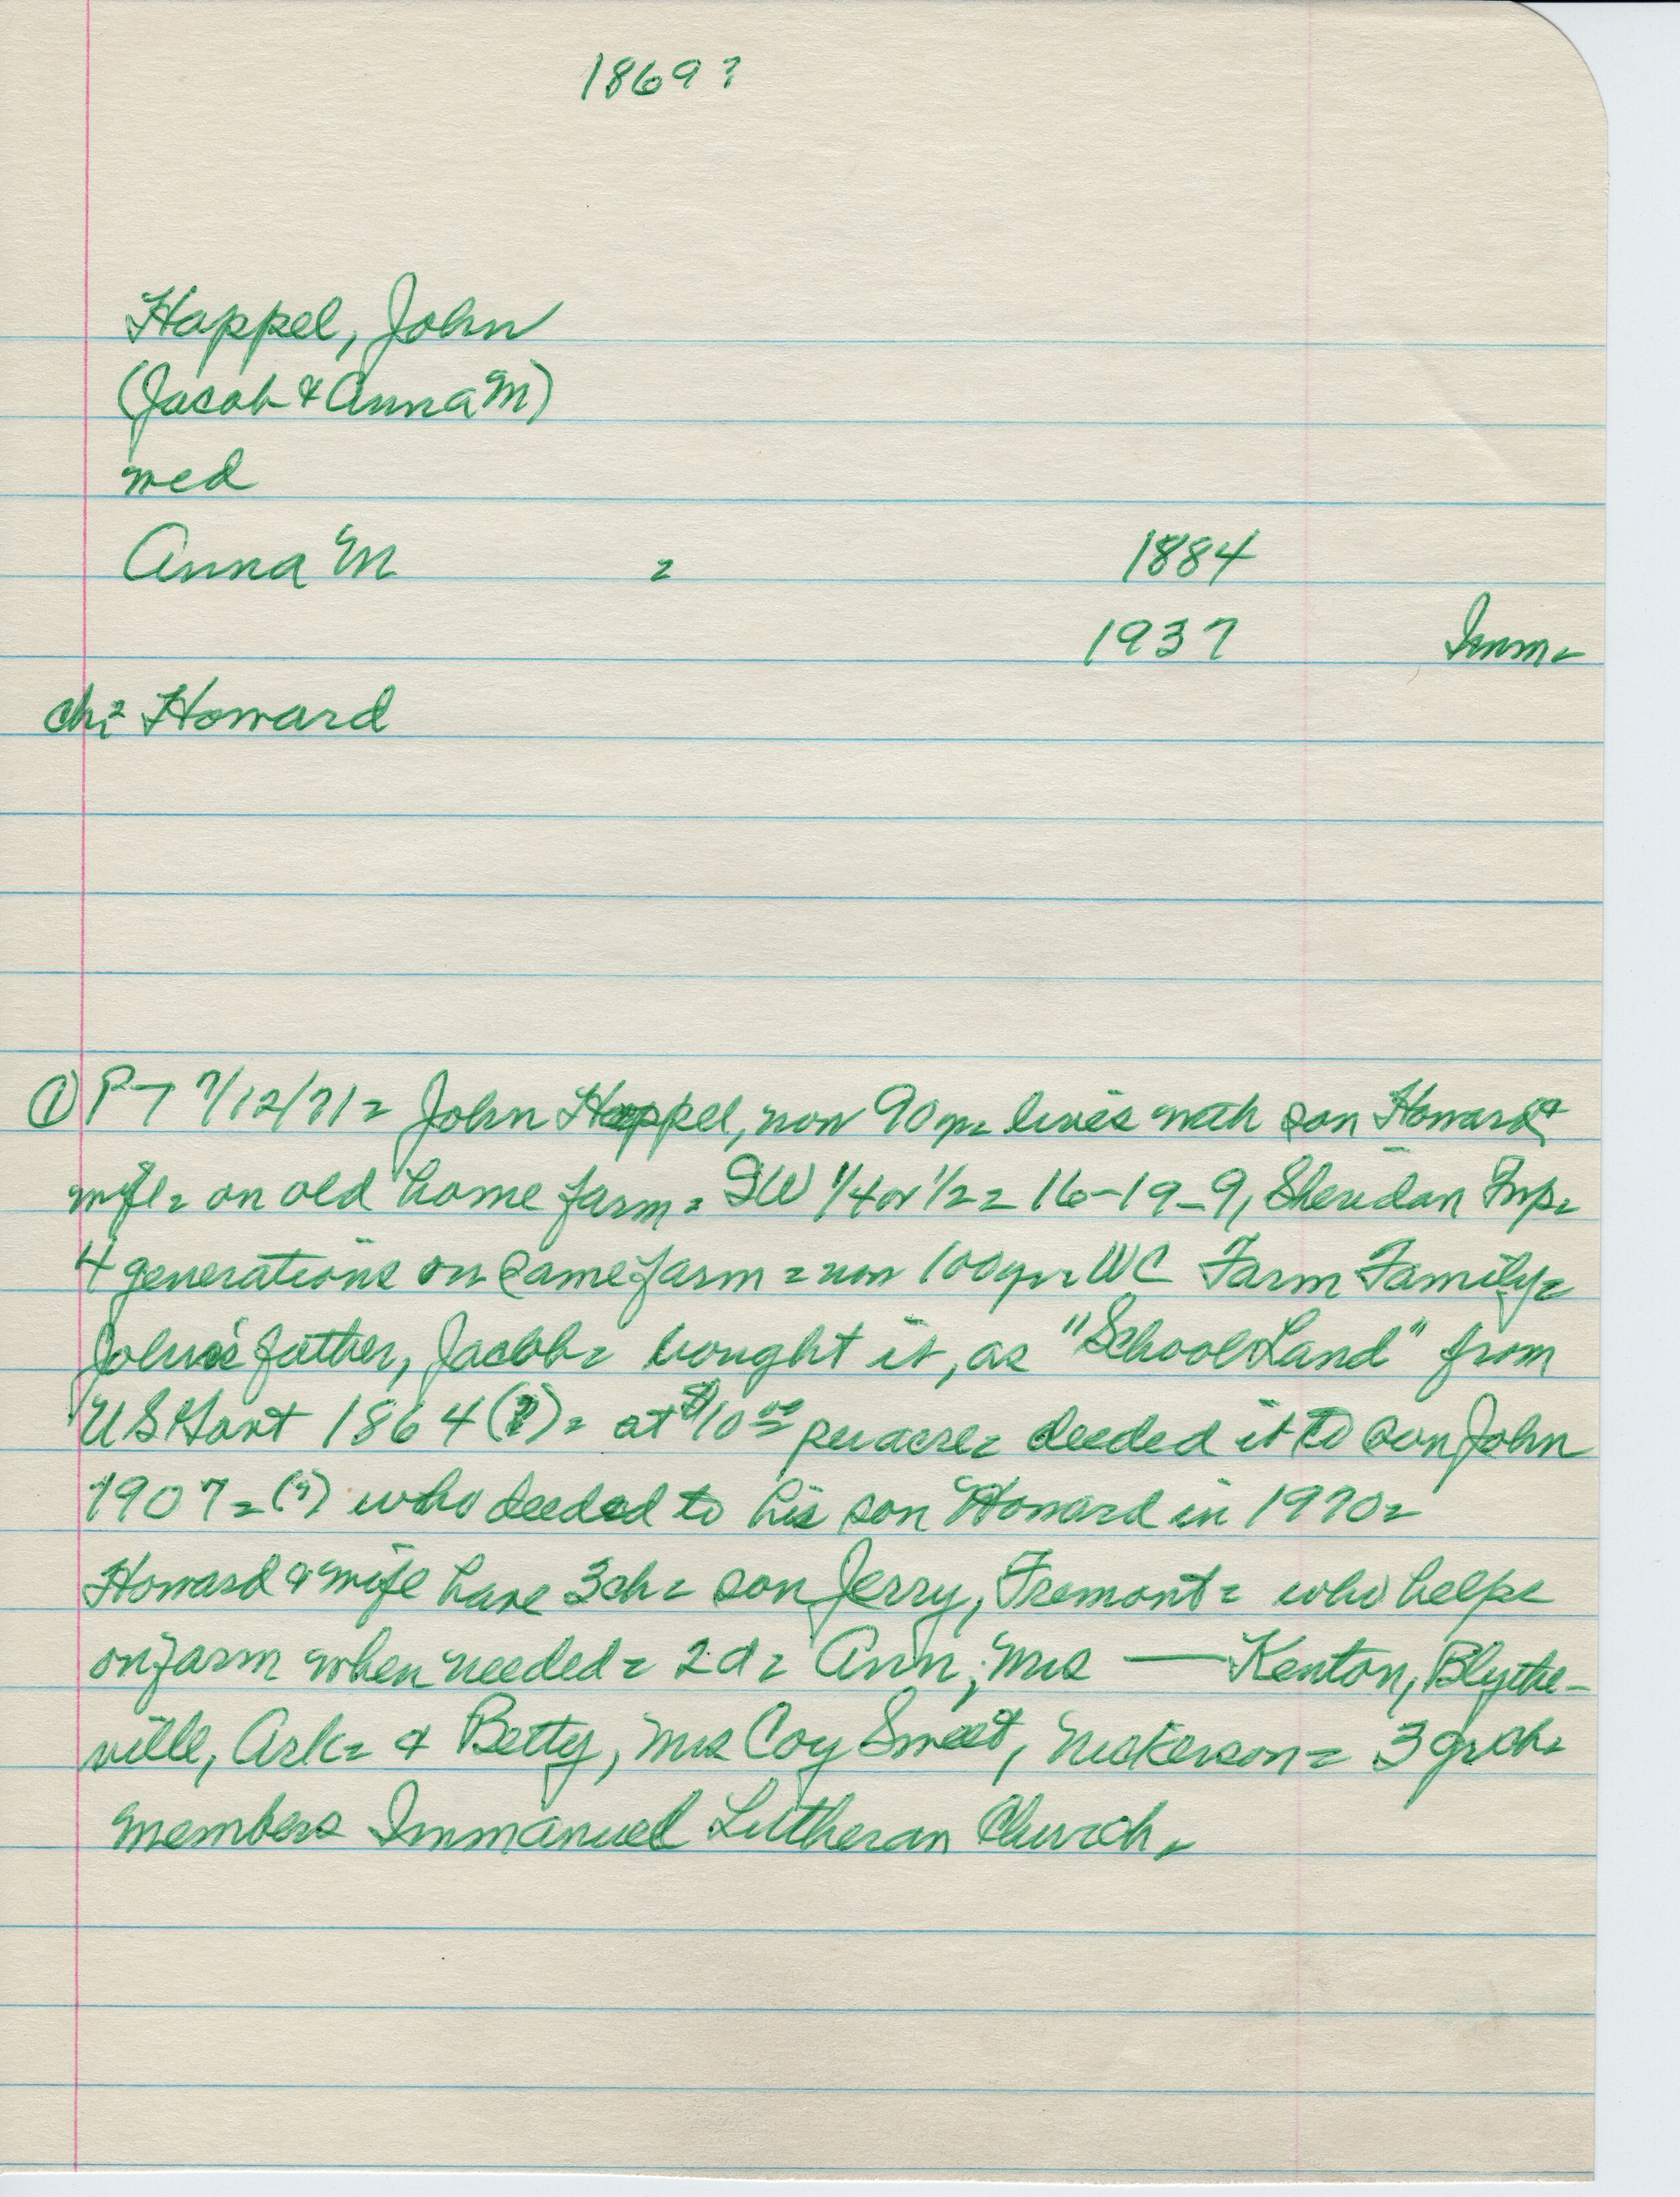 1869?
Happel, John
(Jacob & Anna M)
wed
Anna M = 1884
1937 Imm=
ch= Howard
① P-T 7/12/71= John Happel, now 90yr= lives with son Howard &
wife= on old home farm= SW 1/4 or 1/2= 16-19-9, Sheridan Twp=
4 generations on same farm= now 100yr= WC Farm Family=
John's father, Jacob= bought it, as "School Land" from
US Govt 1864(?)= at $10.00 per acre= deeded it to son John
1907=(?) who deeded to his son Howard in 1970=
Howard & wife have 3ch= son Jerry, Fremont= who helps
on farm when needed= 2d= Ann, Mrs — Kenton, Blythe-
ville, Ark= & Betty, Mrs Coy Sweet, Nickerson= 3 grch=
members Immanuel Lutheran Church=